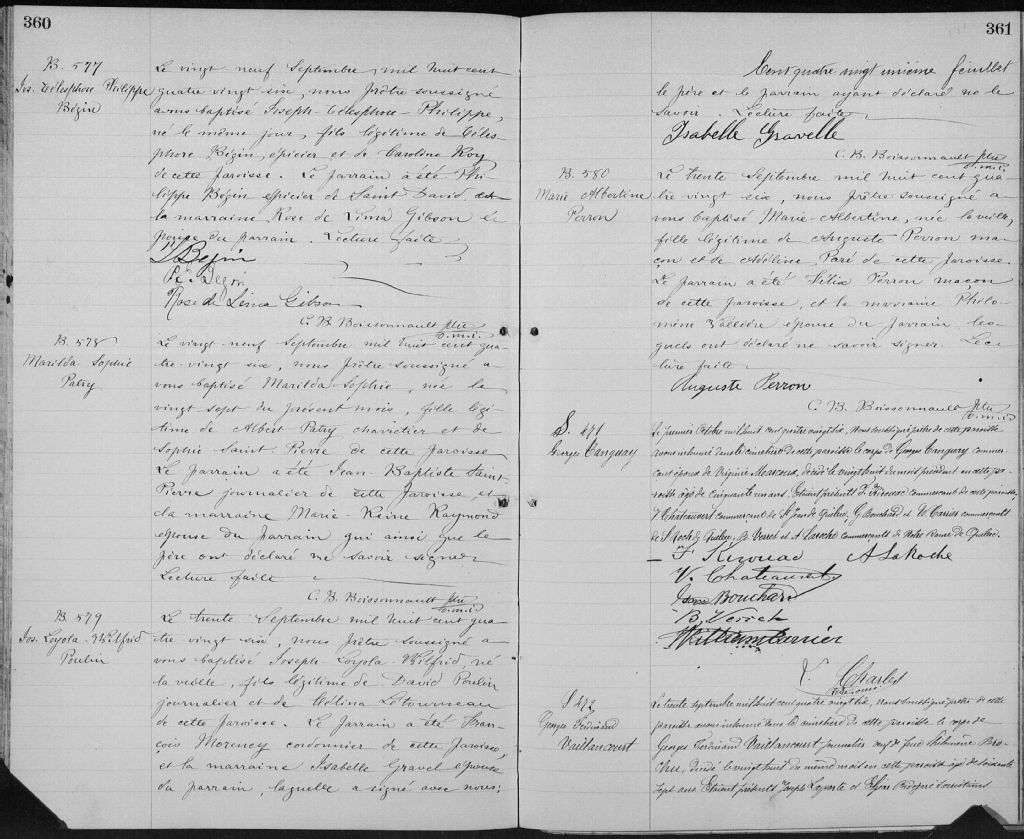 360
B. 577
Jos. Télesphore Philippe
Bégin
Le vingt-neuf Septembre, mil huit cent
quatre vingt six, nous prêtre soussigné
avons baptisé Joseph-Télesphore-Philippe,
né le même jour, fils légitime de Téles-
phore Bégin, épicier et de Caroline Roy
de cette paroisse. Le parrain a été Phi-
lippe Bégin épicier de Saint David et
la marraine Rose de Lima Gibson é-
pouse du parrain. Lecture faite
T Begin
P. Begin
Rose de Lima Gibson
C. B. Boissonnault ptre
o.m.i.
B. 578
Marilda Sophie
Patry
Le vingt-neuf Septembre mil huit cent qua-
tre-vingt six, nous prêtre soussigné a-
vons baptisé Marilda-Sophie, née le
vingt sept du présent mois, fille légi-
time de Albert Patry charretier et de
Sophie Saint-Pierre de cette paroisse
Le parrain a été Jean-Baptiste Saint-
Pierre journalier de cette paroisse, et
la marraine Marie-Reine Raymond
épouse du parrain qui ainsi que le
père ont déclaré ne savoir signer
Lecture faite
C. B. Boissonnault ptre
o.m.i.
B. 579
Jos. Loyola-Wilfrid
Poulin
Le trente Septembre mil huit cent qua-
tre-vingt six, nous prêtre soussigné a-
vons baptisé Joseph Loyola Wilfrid, né
la veille, fils légitime de David Poulin
journalier et de Létourneau
de cette paroisse. Le parrain a été Fran-
çois Morency cordonnier de cette paroisse,
et la marraine Isabelle Gravel épouse
du parrain, laquelle a signé avec nous;
361
Cent quatre vingt unième feuillet
le père et le parrain ayant déclaré ne le
savoir. Lecture faite
Isabelle Gravelle
C. B. Boissonnault ptre
o.m.i.
B. 580
Marie Albertine
Perron
Le trente Septembre mil huit cent qua-
tre vingt six, nous prêtre soussigné a-
vons baptisé Marie-Albertine, née la veille,
fille légitime de Auguste Perron ma-
çon et de Adéline Paré de cette paroisse.
Le parrain a été Félix Perron maçon
de cette paroisse, et la marraine Philo-
mène Vallière épouse du parrain les-
quels ont déclaré ne savoir signer. Lec-
ture faite.
Auguste Perron
C. B. Boissonnault ptre
o.m.i.
S. 471
Georges Tanguay
Le premier Octobre mil huit cent quatre vingt six, nous soussigné prêtre de cette paroisse
avons inhumé dans le cimetière de cette paroisse le corps de Georges Tanguay commer-
cant époux de Virginie Marcoux, décédé le vingt huit du mois précédent en cette pa-
roisse âgé de cinquante un ans. Etaient présents F. Kirouac commercant de cette paroisse,
V. Chateauvert commercant de St Jean de Québec, G Bouchard et W. Carrier commercants
de St Roch de Québec, B Verret et A Laroche commercants de Notre Dame de Québec.
F Kirouac A LaRoche
V. Chateauvert
Bouchard
B. Verret
William Carrier
V. Charles
S 472
Georges Ferdinand
Vaillancourt
Le trente septembre mil huit cent quatre vingt six, nous soussigné prêtre de cette
paroisse avons inhumé dans le cimetière de cette paroisse le corps de
Georges Ferdinand Vaillancourt journalier veuf de feue Philomène Bro-
chu, décédé le vingt huit du même mois en cette paroisse âgé de soixante
sept ans. Etaient présents Joseph Laporte et sacristains